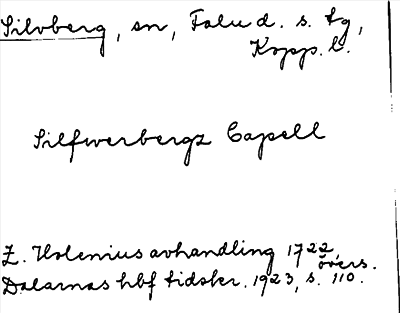 Silvberg, sn, Falu d. s. tg,
Kopp. l.
Silfwerbergz Capell
Z. Holenius avhandling 1722, övers.
Dalarnas hbf tidskr. 1923, s. 110.